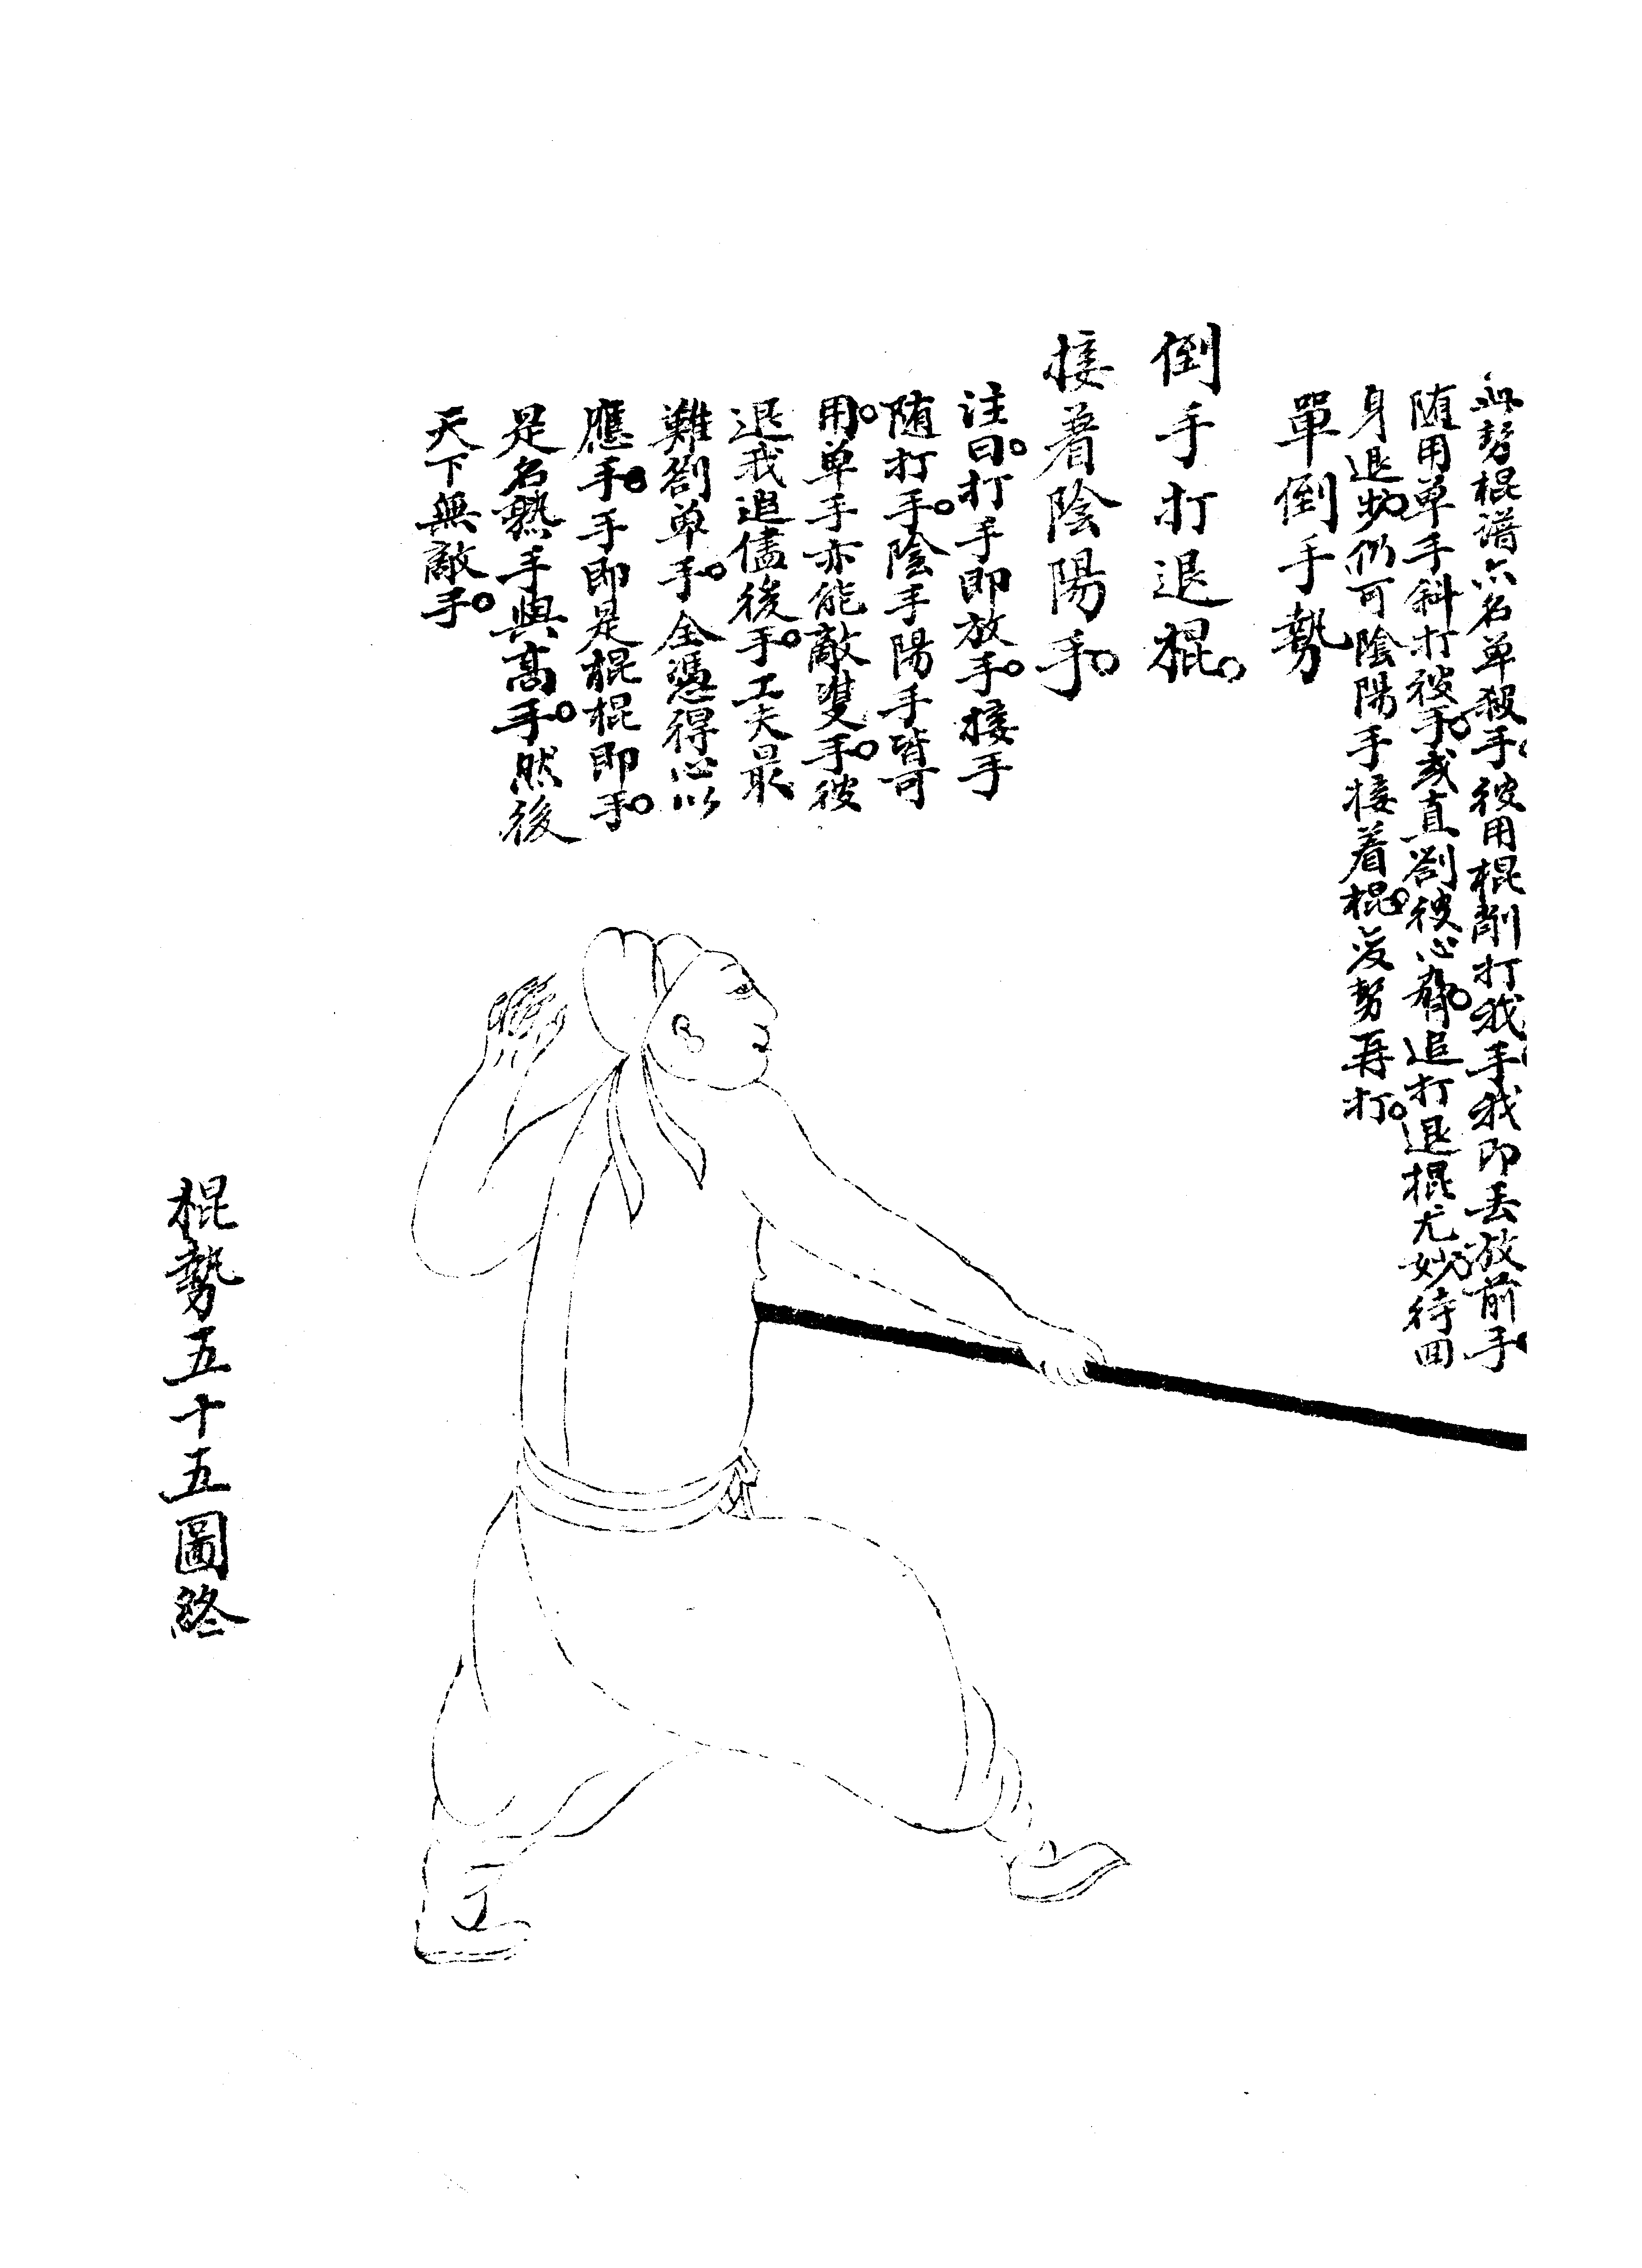 此势棍谱亦名单殺手。彼用棍削打我手我即丢放前手。
随用单手科打彼手。或直劄彼心脅。追打退棍尤妙。待回
身退步。仍可陰陽手接着棍。变势再打。
單倒手勢
倒手打退棍。
接着陰陽手。
注曰。打手即放手。接手
随打手。陰手陽手皆可
用。单手亦能敵雙手。彼
退我追儘後手。工夫最
難劄单手。全憑得心以
應手。手即是棍棍即手。
是名熟手與高手。然後
天下無敵手。
棍勢五十五圖終